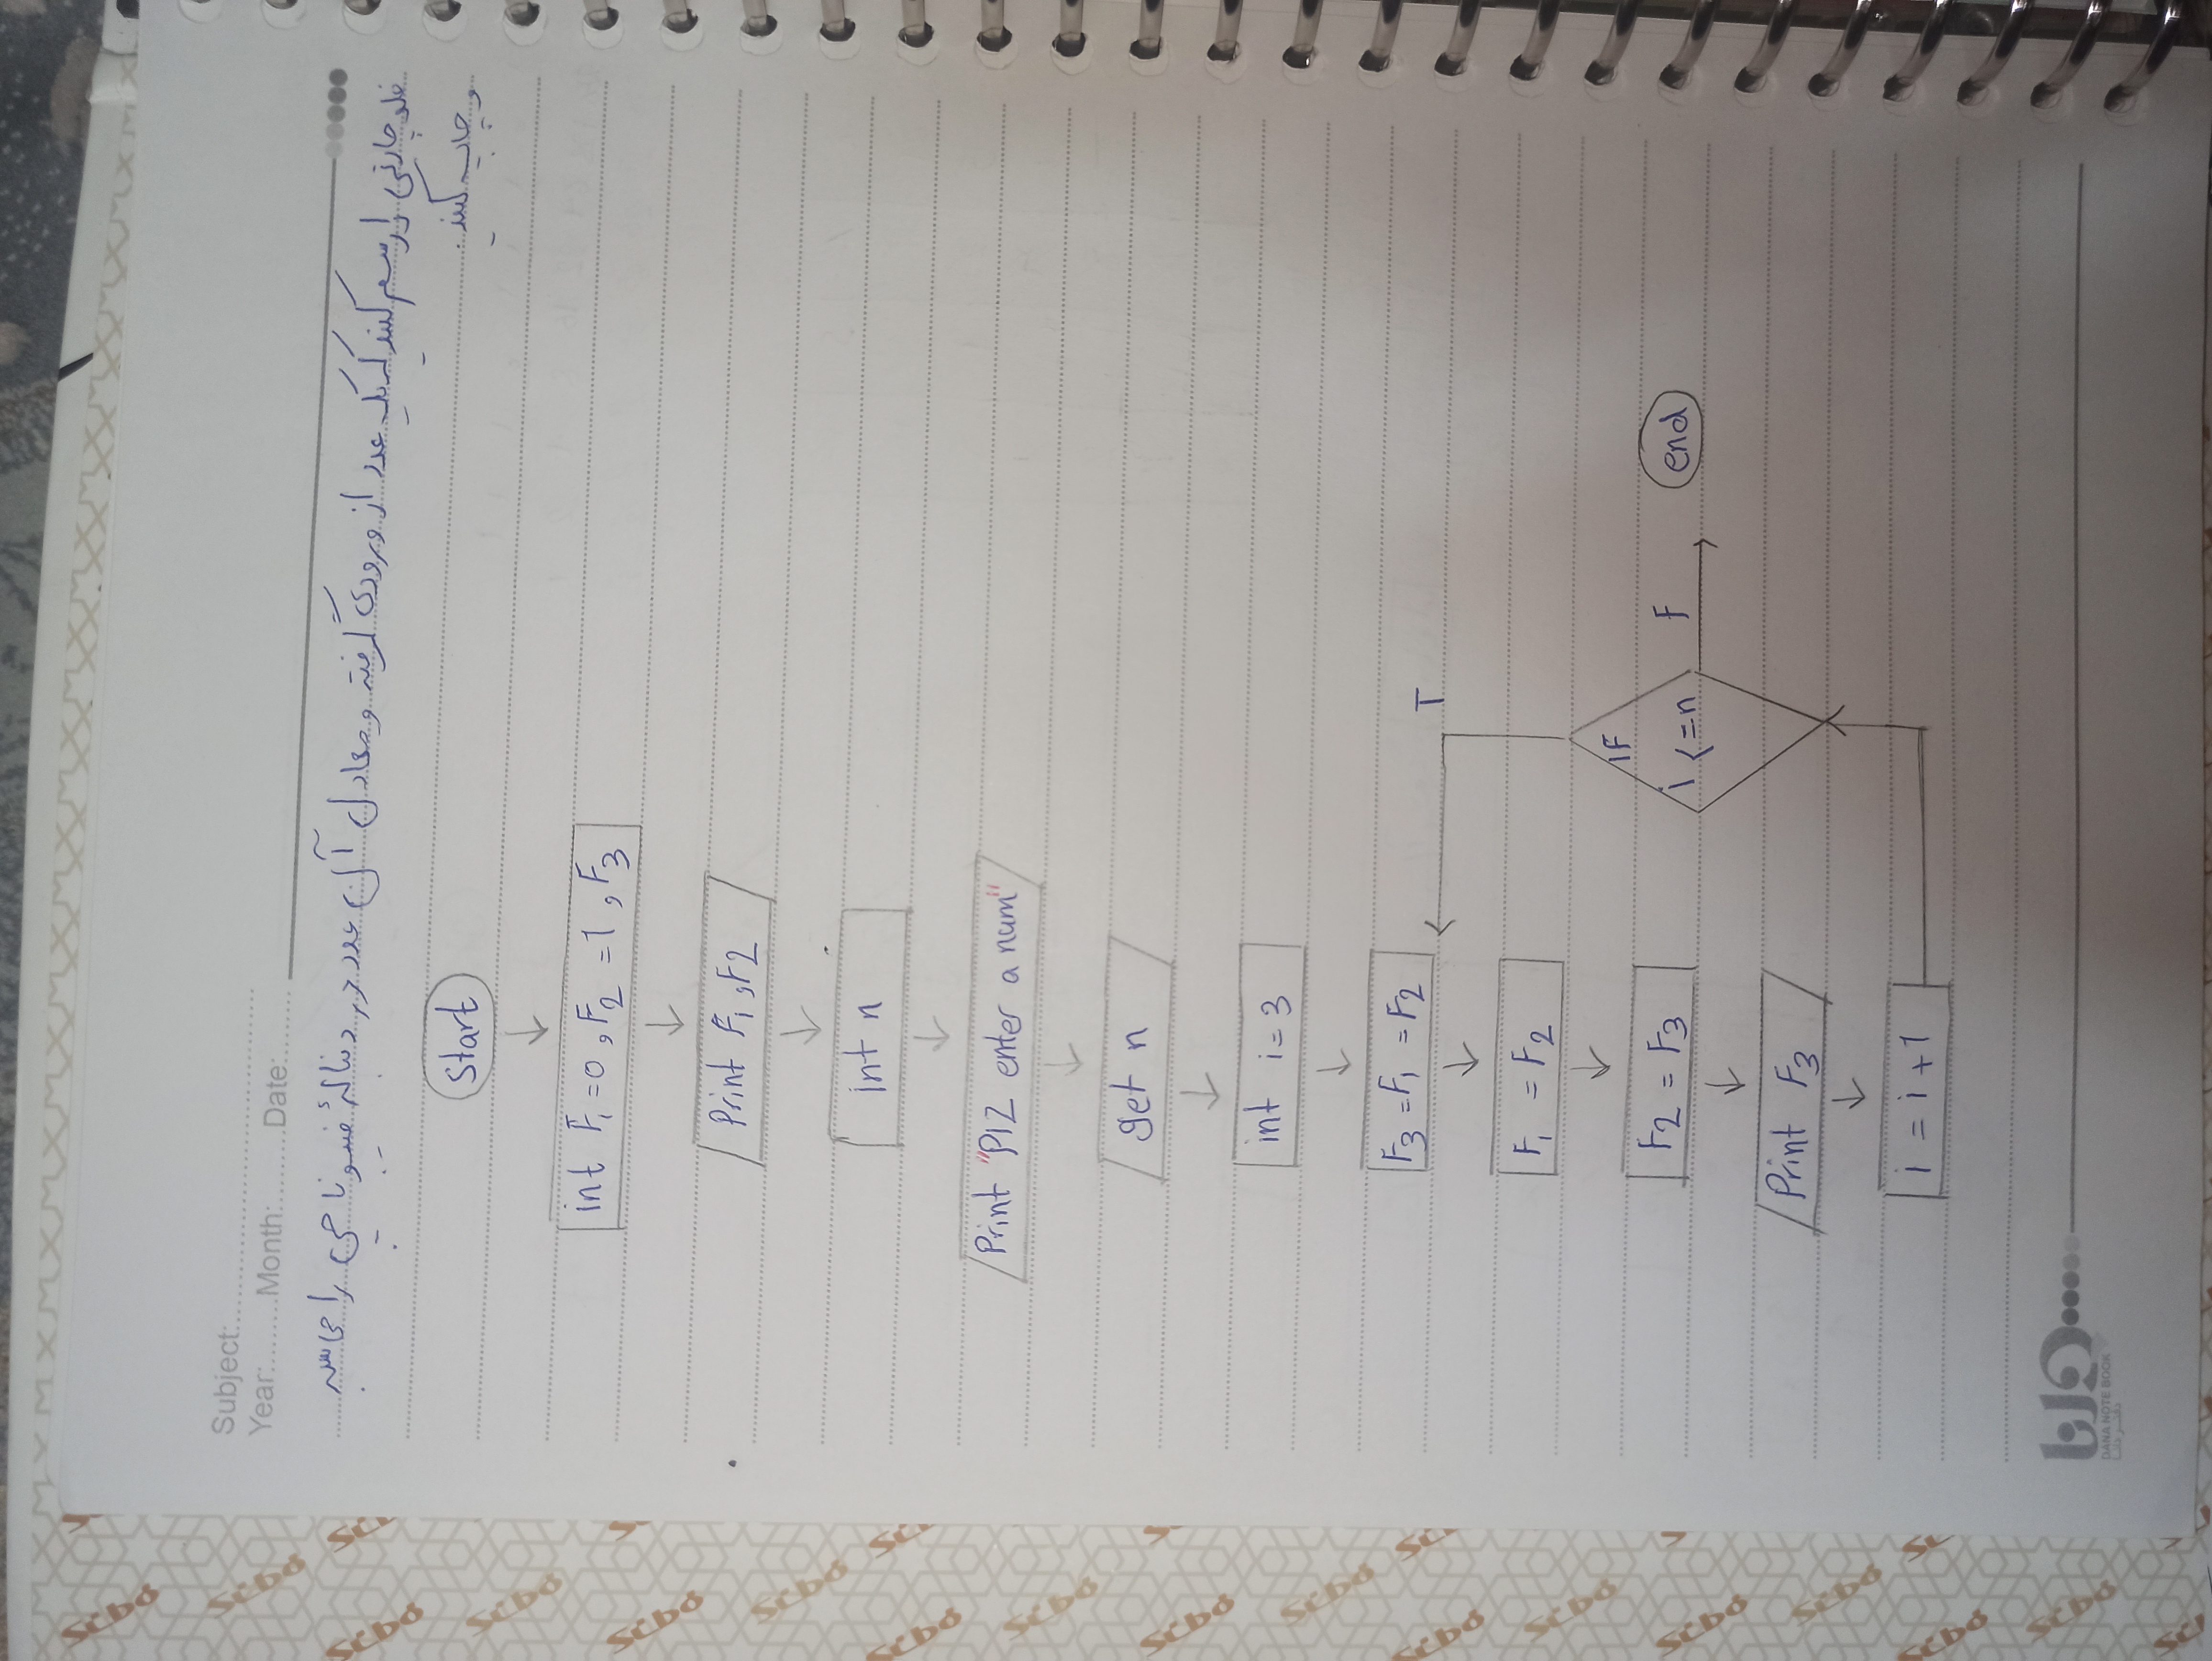 Subject:
Year: Month: Date:
فلوچارتی را رسم کنید که یک عدد از ورودی گرفته و معادل آن عدد در دنبالهٔ فیبوناچی را محاسبه
و چاپ کنید.
Start
int F1=0, F2=1, F3
Print F1, F2
int n
Print "Plz enter a num"
get n
int i=3
F3=F1=F2
T
F1=F2
IF
F2=F3
i<=n
F
end
Print F3
i=i+1
دانا
DANA NOTE BOOK
دفتر دانا